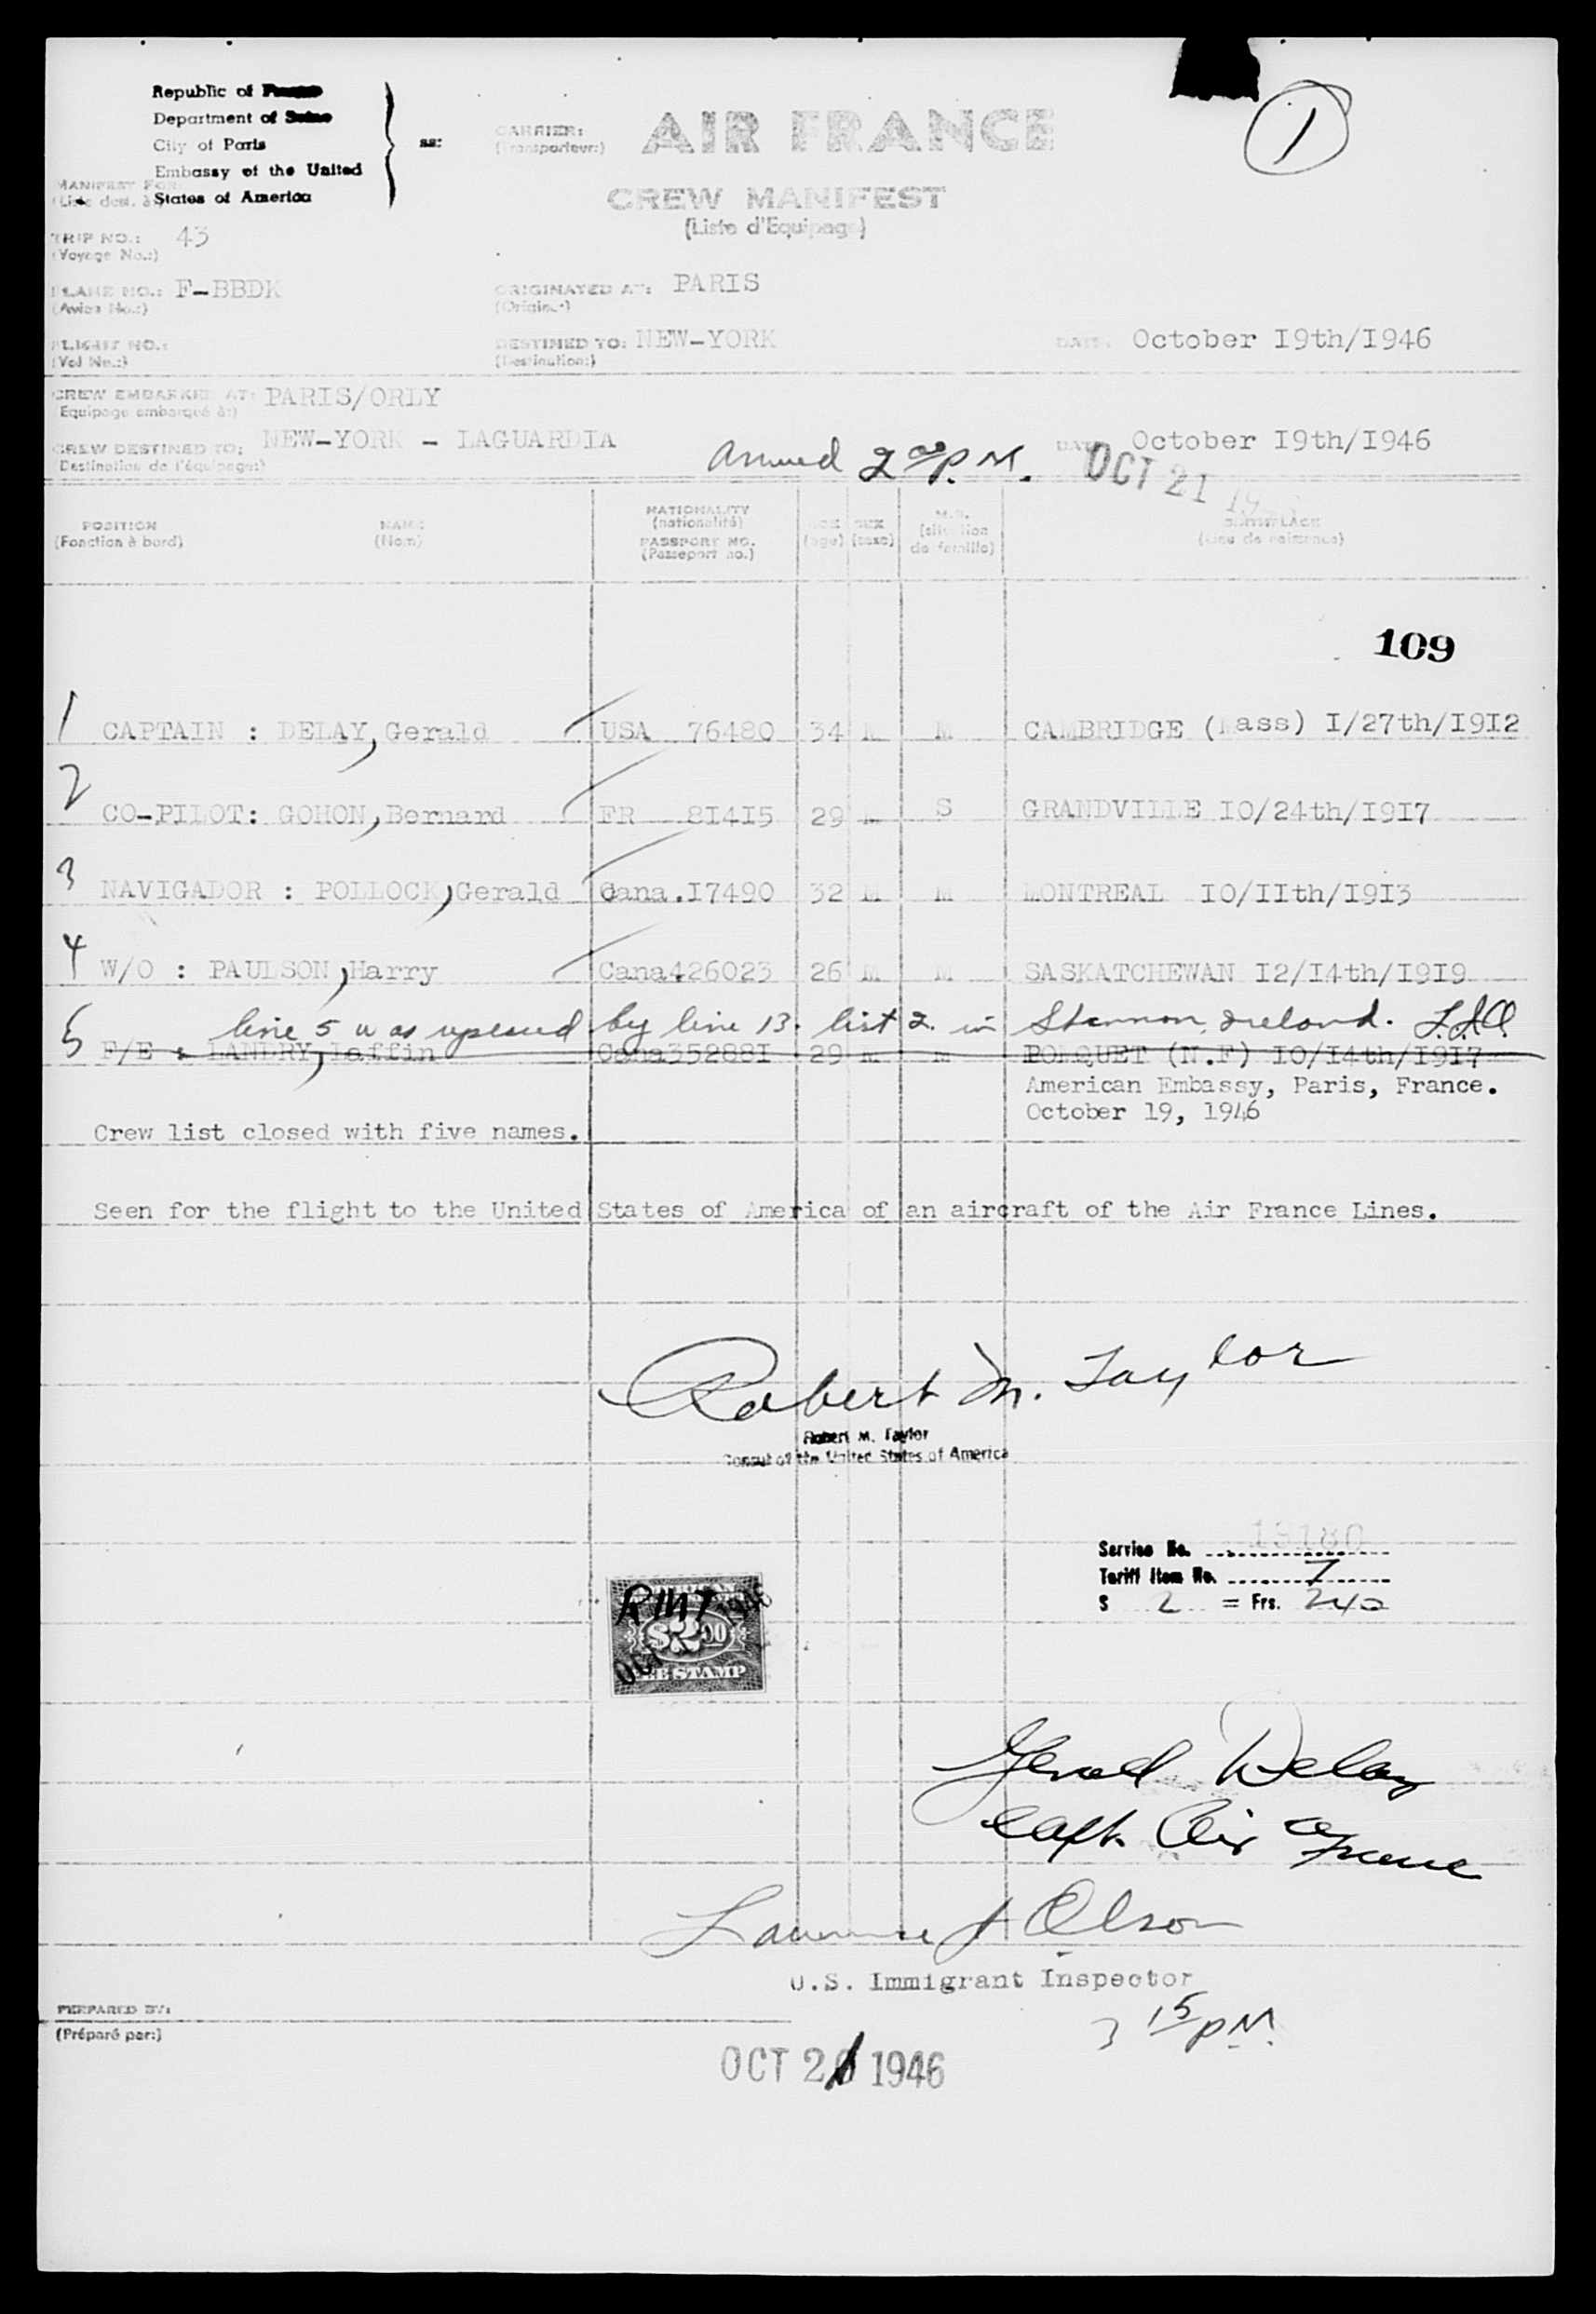 Republic of
Department of
City of Paris
Embassy of the United
States of America
ss:
CARRIER:
(Transporteur:)
AIR FRANCE
1
MANIFEST FOR
(Liste dest. à
CREW MANIFEST
(Liste d'Equipage)
TRIP NO.: 43
(Voyage No.:)
PLANE NO.: F-BBDK
(Avion No.:)
ORIGINATED AT: PARIS
(Origine:)
FLIGHT NO.:
(Vol No.:)
DESTINED TO: NEW-YORK
(Destination:)
DATE: October I9th/I946
CREW EMBARKED AT: PARIS/ORLY
(Equipage embarqué à:)
CREW DESTINED TO: NEW-YORK - LAGUARDIA
(Destination de l'équipage:)
Arrived 2 00 P.M.
DATE: October I9th/I946
OCT 21 19
POSITION
(Fonction à bord)
NAME
(Nom)
NATIONALITY
(nationalité)
PASSPORT NO.
(Passeport no.)
AGE
(age)
SEX
(sexe)
M.S.
(situation
de famille)
BIRTHPLACE
(Lieu de naissance)
109
1 CAPTAIN : DELAY, Gerald USA 76480 34 M M CAMBRIDGE (Mass) I/27th/I9I2
2 CO-PILOT: GOHON, Bernard FR 8I4I5 29 M S GRANDVILLE IO/24th/I9I7
3 NAVIGADOR : POLLOCK, Gerald Cana.I7490 32 M M MONTREAL IO/IIth/I9I3
4 W/O : PAULSON, Harry Cana426023 26 M M SASKATCHEWAN I2/I4th/I9I9
line 5 was replaced by line 13. list 2. in Shannon, Ireland. L.J.O.
5 F/E : LANDRY, Laffin Cana35288I 29 M M POMQUET (N.F) IO/I4th/I9I7
American Embassy, Paris, France.
October 19, 1946
Crew list closed with five names.
Seen for the flight to the United States of America of an aircraft of the Air France Lines.
Robert M. Taylor
Robert M. Taylor
Consul of the United States of America
Service No. 13180
Tariff Item No. 7
$ 2 = Frs. 240
RMT
OCT 1946
$2.00
FEE STAMP
Gerald Delay
Capt. Air France
Lawrence J Olson
U.S. Immigrant Inspector
3 15 PM.
PREPARED BY:
(Préparé par:)
OCT 21 1946